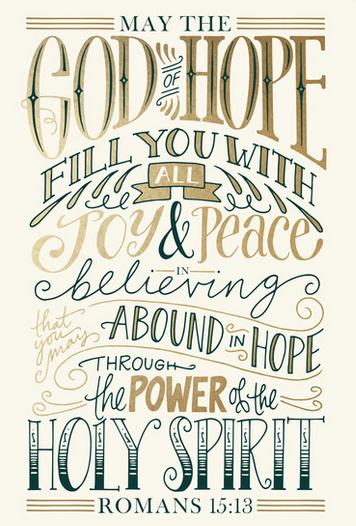 MAY THE
GOD OF HOPE
FILL YOU WITH
ALL
Joy & Peace
IN
believing
that you may ABOUND IN HOPE
THROUGH
the POWER of the
HOLY SPIRIT
ROMANS 15:13